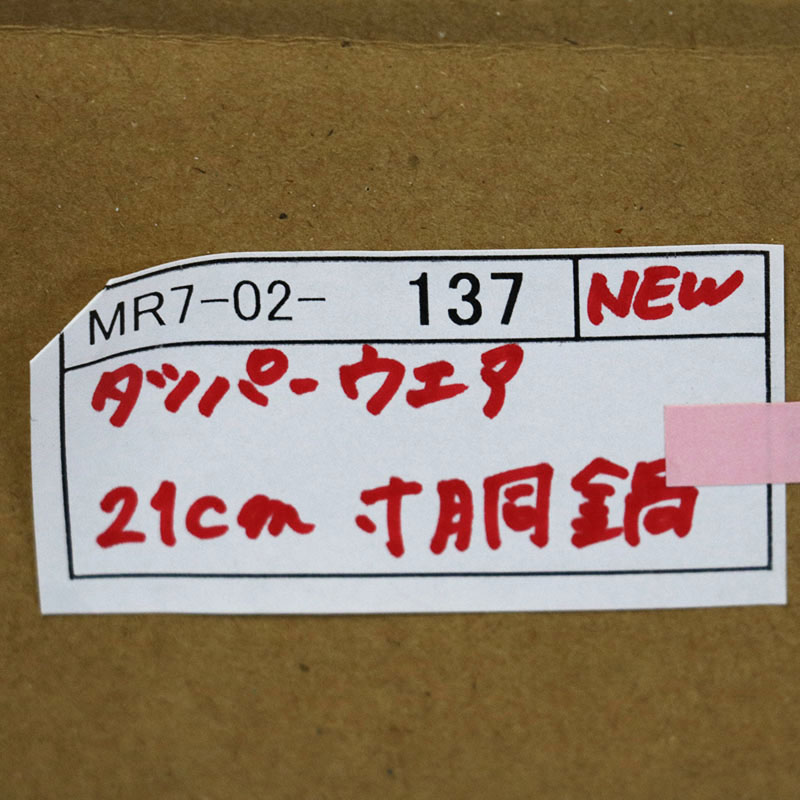 MR7-02- 137 NEW
タッパーウェア
21cm 寸胴鍋